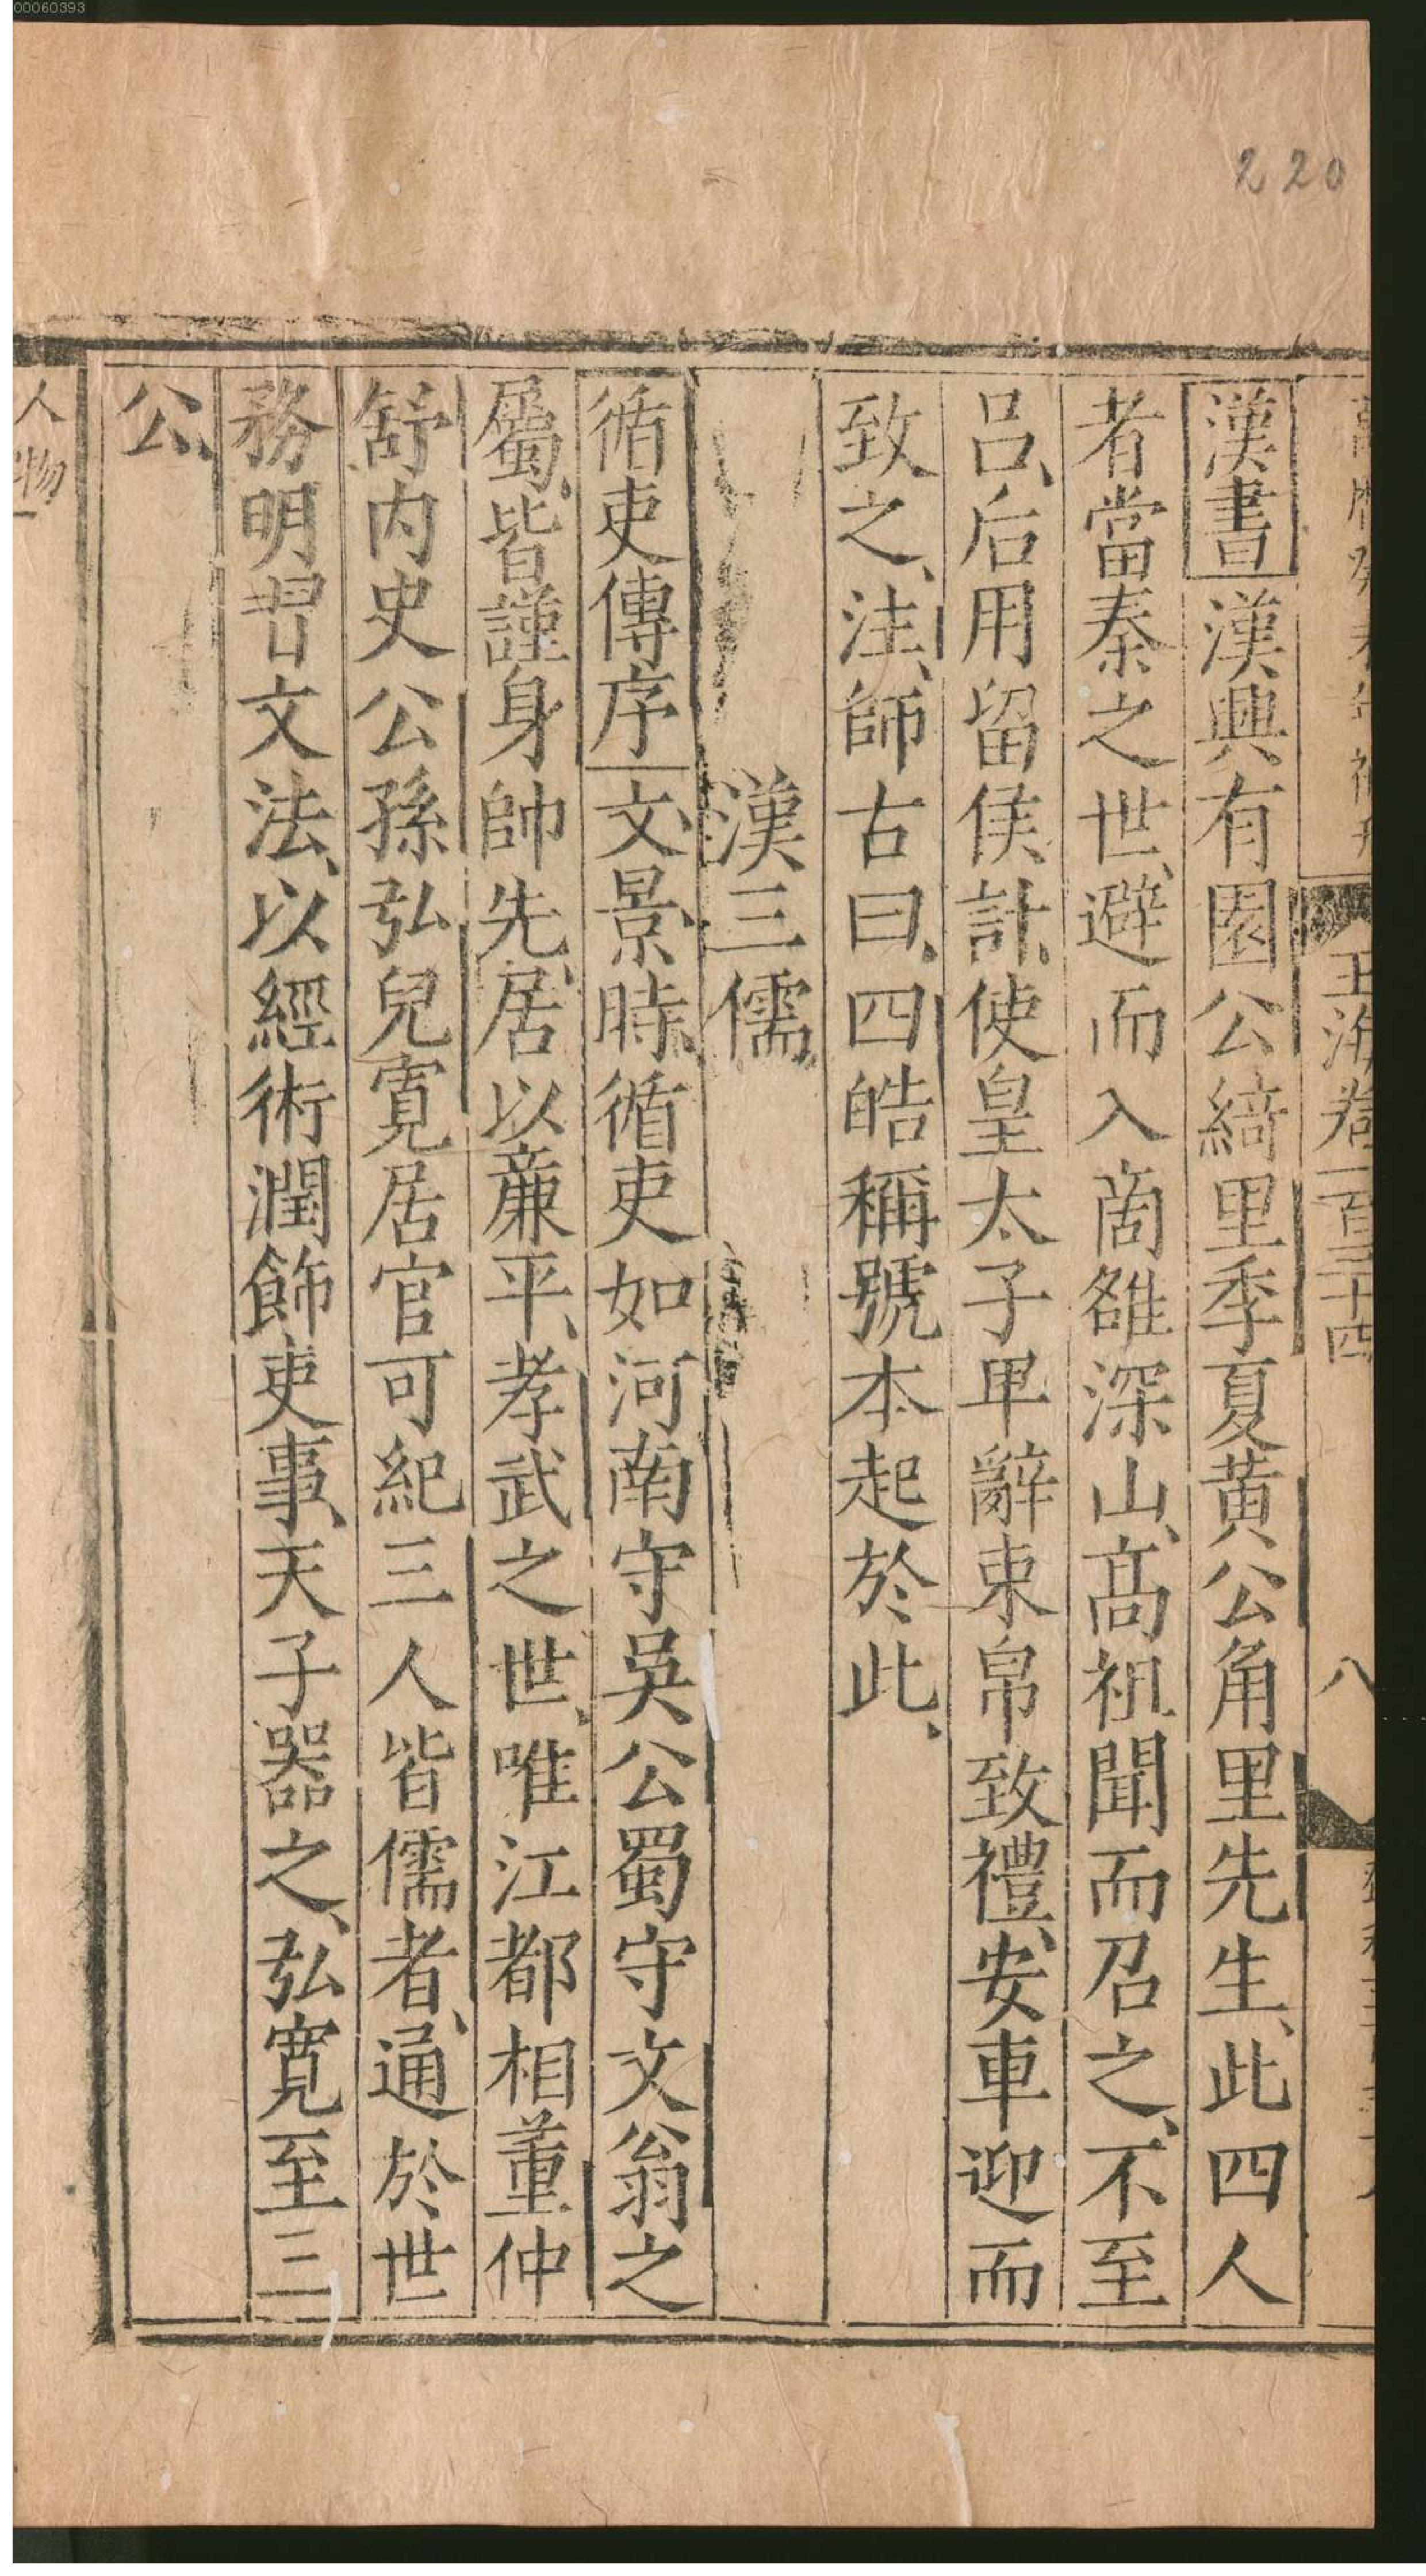 00060393
220
玉海卷一百三十四
八
漢書漢興有園公綺里季夏黃公角里先生、此四人
者當秦之世、避而入啇雒深山、髙祖聞而召之、不至
吕、后用留侯計、使皇太子卑辭束帛致禮、安車迎而
致之、注、師古曰、四皓稱號本起於此、
漢三儒
循吏傳序文景時、循吏如河南守吳公蜀守文翁之
屬、皆謹身帥先、居以亷平、孝武之世、唯江都相董仲
舒内史公孫弘兒寛居官可紀三人皆儒者、通於世
務明習文法、以經術潤飾吏事、天子器之、弘寛至三
公、
人物